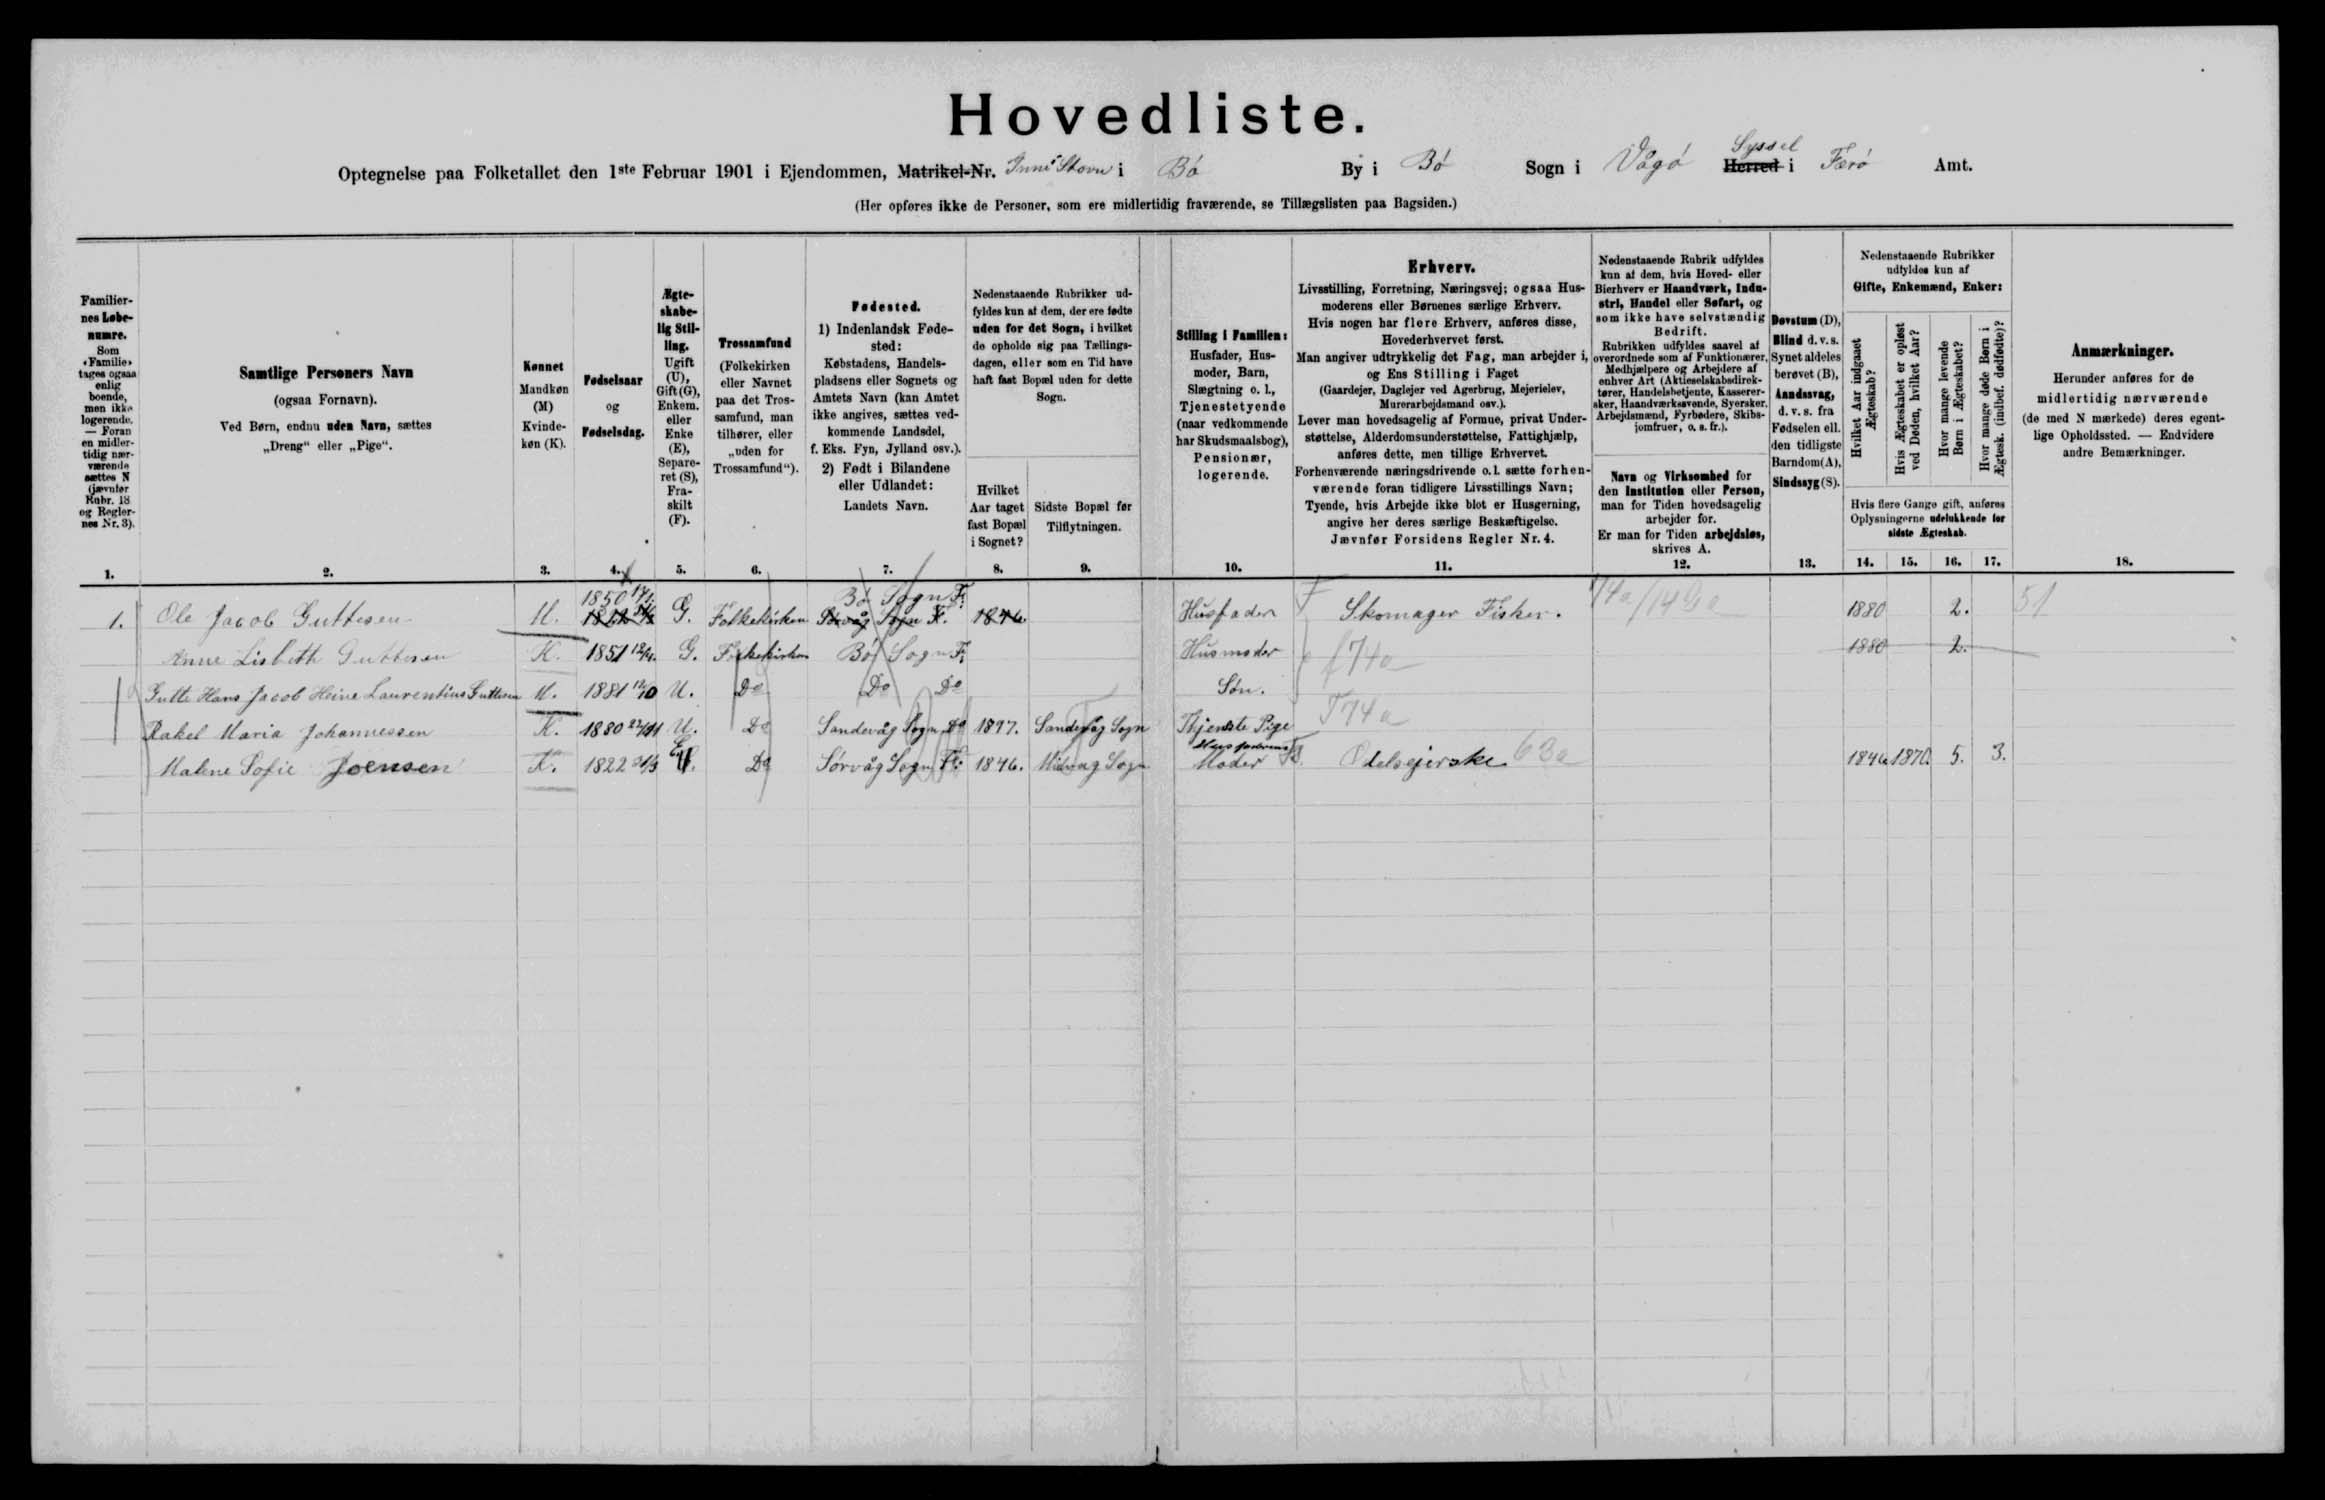 Hovedliste.
Optegnelse paa Folketallet den 1ste Februar 1901 i Ejendommen, Matrikel-Nr. Inni Stovu i Bø By i Bø Sogn i Vågø Herred Syssel i Færø Amt.
(Her opføres ikke de Personer, som ere midlertidig fraværende, se Tillægslisten paa Bagsiden.)
Familier-
nes Løbe-
numre.
Som
«Familie»
tages ogsaa
enlig
boende,
men ikke
logerende.
— Foran
en midler-
tidig nær-
værende
sættes N
(jævnfør
Rubr. 18
og Regler-
nes Nr. 3).
Samtlige Personers Navn
(ogsaa Fornavn).
Ved Børn, endnu uden Navn, sættes
„Dreng“ eller „Pige“.
Kønnet
Mandkøn
(M)
Kvinde-
køn (K).
Fødselsaar
og
Fødselsdag.
Ægte-
skabe-
lig Stil-
ling.
Ugift
(U),
Gift (G),
Enkem.
eller
Enke
(E),
Separe-
ret (S),
Fra-
skilt
(F).
Trossamfund
(Folkekirken
eller Navnet
paa det Tros-
samfund, man
tilhører, eller
„uden for
Trossamfund“).
Fødested.
1) Indenlandsk Føde-
sted:
Købstadens, Handels-
pladsens eller Sognets og
Amtets Navn (kan Amtet
ikke angives, sættes ved-
kommende Landsdel,
f. Eks. Fyn, Jylland osv.).
2) Født i Bilandene
eller Udlandet:
Landets Navn.
Nedenstaaende Rubrikker ud-
fyldes kun af dem, der ere fødte
uden for det Sogn, i hvilket
de opholde sig paa Tællings-
dagen, eller som en Tid have
haft fast Bopæl uden for dette
Sogn.
Hvilket
Aar taget
fast Bopæl
i Sognet?
Sidste Bopæl før
Tilflytningen.
Stilling i Familien:
Husfader, Hus-
moder, Barn,
Slægtning o. l.,
Tjenestetyende
(naar vedkommende
har Skudsmaalsbog),
Pensionær,
logerende.
Erhverv.
Livsstilling, Forretning, Næringsvej; ogsaa Hus-
moderens eller Børnenes særlige Erhverv.
Hvis nogen har flere Erhverv, anføres disse,
Hovederhvervet først.
Man angiver udtrykkelig det Fag, man arbejder i,
og Ens Stilling i Faget
(Gaardejer, Daglejer ved Agerbrug, Mejerielev,
Murerarbejdsmand osv.).
Lever man hovedsagelig af Formue, privat Under-
støttelse, Alderdomsunderstøttelse, Fattighjælp,
anføres dette, men tillige Erhvervet.
Forhenværende næringsdrivende o. l. sætte forhen-
værende foran tidligere Livsstillings Navn;
Tyende, hvis Arbejde ikke blot er Husgerning,
angive her deres særlige Beskæftigelse.
Jævnfør Forsidens Regler Nr. 4.
Nedenstaaende Rubrik udfyldes
kun af dem, hvis Hoved- eller
Bierhverv er Haandværk, Indu-
stri, Handel eller Søfart, og
som ikke have selvstændig
Bedrift.
Rubrikken udfyldes saavel af
overordnede som af Funktionærer,
Medhjælpere og Arbejdere af
enhver Art (Aktieselskabsdirek-
tører, Handelsbetjente, Kasserer-
sker, Haandværkssvende, Syersker,
Arbejdsmænd, Fyrbødere, Skibs-
jomfruer, o. s. fr.).
Navn og Virksomhed for
den Institution eller Person,
man for Tiden hovedsagelig
arbejder for.
Er man for Tiden arbejdsløs,
skrives A.
Døvstum (D),
Blind d. v. s.
Synet aldeles
berøvet (B),
Aandssvag,
d. v. s. fra
Fødselen ell.
den tidligste
Barndom (A),
Sindssyg (S).
Nedenstaaende Rubrikker
udfyldes kun af
Gifte, Enkemænd, Enker:
Hvilket Aar indgaaet
Ægteskab?
Hvis Ægteskabet er opløst
ved Døden, hvilket Aar?
Hvor mange levende
Børn i Ægteskabet?
Hvor mange døde Børn i
Ægtesk. (indbef. dødfødte)?
Hvis flere Gange gift, anføres
Oplysningerne udelukkende for
sidste Ægteskab.
Anmærkninger.
Herunder anføres for de
midlertidig nærværende
(de med N mærkede) deres egent-
lige Opholdssted. — Endvidere
andre Bemærkninger.
1. 2. 3. 4. 5. 6. 7. 8. 9. 10. 11. 12. 13. 14. 15. 16. 17. 18.
1850 Bø Sogn F:
1. Ole Jacob Guttesen M. G. Folkekirken Sørvåg Sogn F. 1846 Husfader F Skomager Fisker. 1880 2. 51
Anne Lisbeth Guttesen K. 1851 G. Folkekirken Bø Sogn F: Husmoder f74a 1880 2.
Gutte Hans Jacob Heine Laurentius Guttesen M. 1881 U. Do Do Do Søn.
Rakel Maria Johannessen K. 1880 U. Do Sandevåg Sogn Do 1897. Sandevåg Sogn Tjeneste Pige T74a
Malene Sofie Joensen K. 1822 E. Do Sørvåg Sogn F: 1846. Midvag Sogn Husfaderens Moder Odelsejerske 63a 1846 1870. 5. 3.